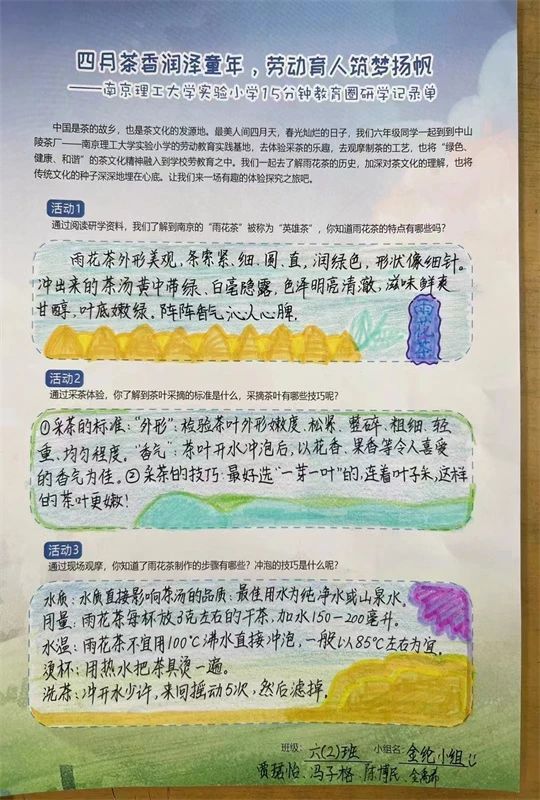 四月茶香润泽童年，劳动育人筑梦扬帆
——南京理工大学实验小学15分钟教育圈研学记录单
中国是茶的故乡，也是茶文化的发源地。最美人间四月天，春光灿烂的日子，我们六年级同学一起到到中山
陵茶厂——南京理工大学实验小学的劳动教育实践基地，去体验采茶的乐趣，去观摩制茶的工艺，也将“绿色、
健康、和谐”的茶文化精神融入到学校劳动教育之中。我们一起去了解雨花茶的历史，加深对茶文化的理解，也将
传统文化的种子深深地埋在心底。让我们来一场有趣的体验探究之旅吧。
活动1
通过阅读研学资料，我们了解到南京的“雨花茶”被称为“英雄茶”，你知道雨花茶的特点有哪些吗？
雨花茶外形美观，条索紧、细、圆、直，润绿色，形状像细针。
冲出来的茶汤黄中带绿、白毫隐露，色泽明亮清澈，滋味鲜爽
甘醇，叶底嫩绿。阵阵香气沁人心脾。
雨花茶
活动2
通过采茶体验，你了解到茶叶采摘的标准是什么，采摘茶叶有哪些技巧呢？
①采茶的标准：“外形”：检验茶叶外形嫩度、松紧、整碎、粗细、轻
重、均匀程度。“香气”：茶叶开水冲泡后，以花香、果香等令人喜爱
的香气为佳。②采茶的技巧：最好选“一芽一叶”的，连着叶子采，这样
的茶叶更嫩！
活动3
通过现场观摩，你知道了雨花茶制作的步骤有哪些？冲泡的技巧是什么呢？
水质：水质直接影响茶汤的品质；最佳用水为纯净水或山泉水。
用量：雨花茶每杯放3克左右的干茶，加水150－200毫升。
水温：雨花茶不宜用100℃沸水直接冲泡，一般以85℃左右为宜。
烫杯：用热水把茶具烫一遍。
洗茶：冲开水少许，来回摇动5次，然后滤掉。
班级：六(2)班 小组名：金纶小组
冯子格、陈博民、